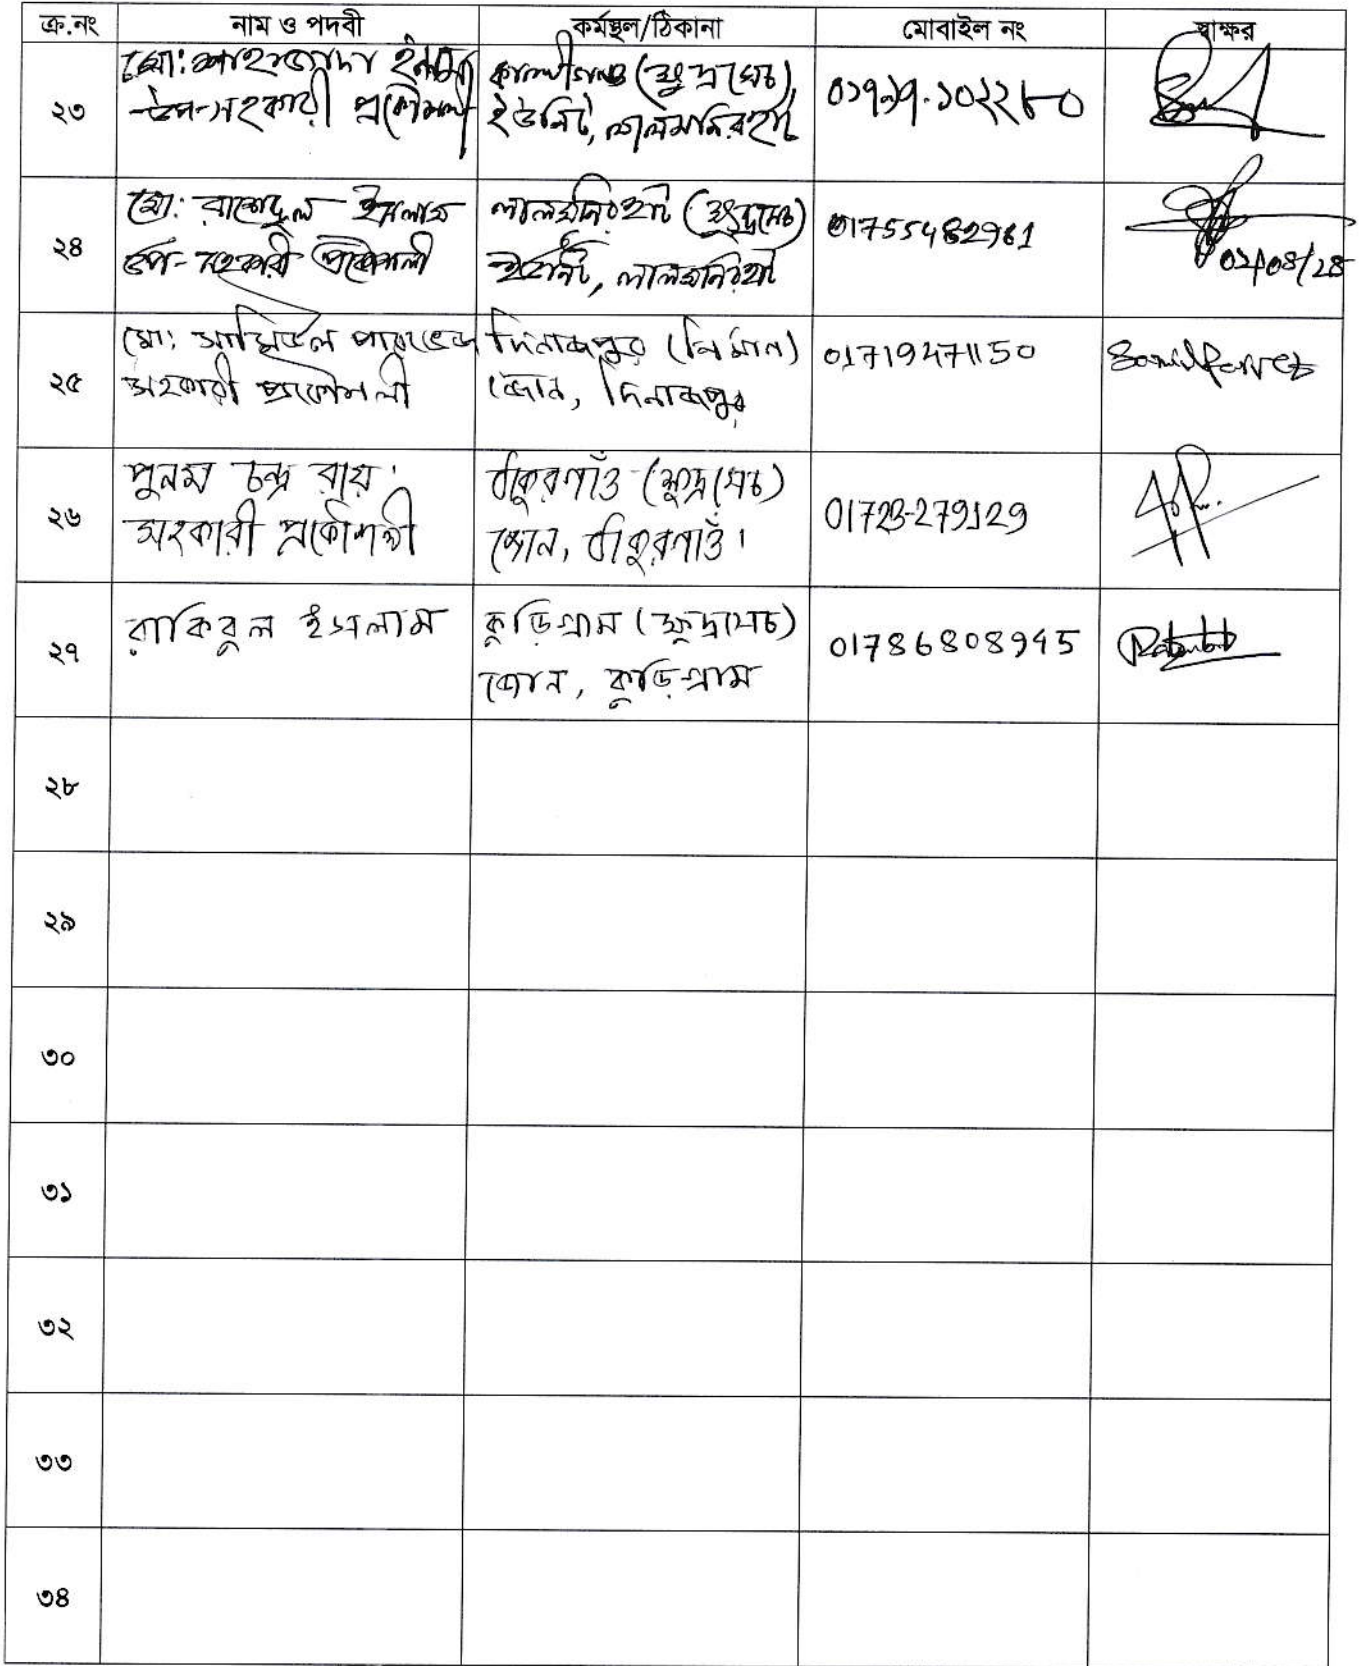 ক্র.নং নাম ও পদবী কর্মস্থল/ঠিকানা মোবাইল নং স্বাক্ষর
২৩
মো: শাহজাদা ইসলাম
উপ-সহকারী প্রকৌশলী
কালীগঞ্জ (ক্ষুদ্রসেচ)
ইউনিট, লালমনিরহাট
২৪
মো: রাশেদুল ইসলাম
উপ-সহকারী প্রকৌশলী
লালমনিরহাট (ক্ষুদ্রসেচ)
ইউনিট, লালমনিরহাট
01755482961
০২/০৪/২৪
২৫
মো: সামিউল পারভেজ
সহকারী প্রকৌশলী
দিনাজপুর (নির্মান)
জোন, দিনাজপুর
01719471150
২৬
পুনম চন্দ্র রায়
সহকারী প্রকৌশলী
ঠাকুরগাঁও (ক্ষুদ্রসেচ)
জোন, ঠাকুরগাঁও।
01723-279129
২৭
রাকিবুল ইসলাম
কুড়িগ্রাম (ক্ষুদ্রসেচ)
জোন, কুড়িগ্রাম
01786808945
২৮
২৯
৩০
৩১
৩২
৩৩
৩৪